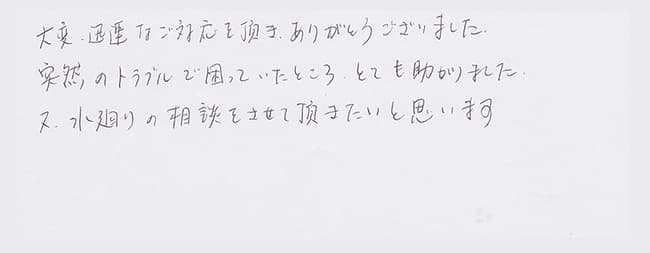 大変、迅速なご対応を頂き、ありがとうございました。
突然のトラブルで困っていたところ、とても助かりました。
又、水廻りの相談をさせて頂きたいと思います